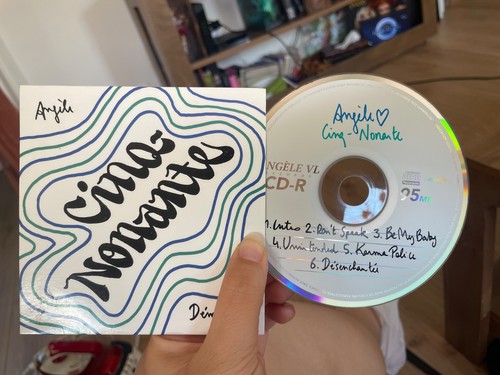 Angèle
Cinq-
Nonante
Dém
Angèle ♡
Cinq-Nonante
ANGÈLE VL
CD-R
95
1. Intro 2. Don't Speak 3. Be My Baby
4. Unintended 5. Karma Police
6. Désenchantée